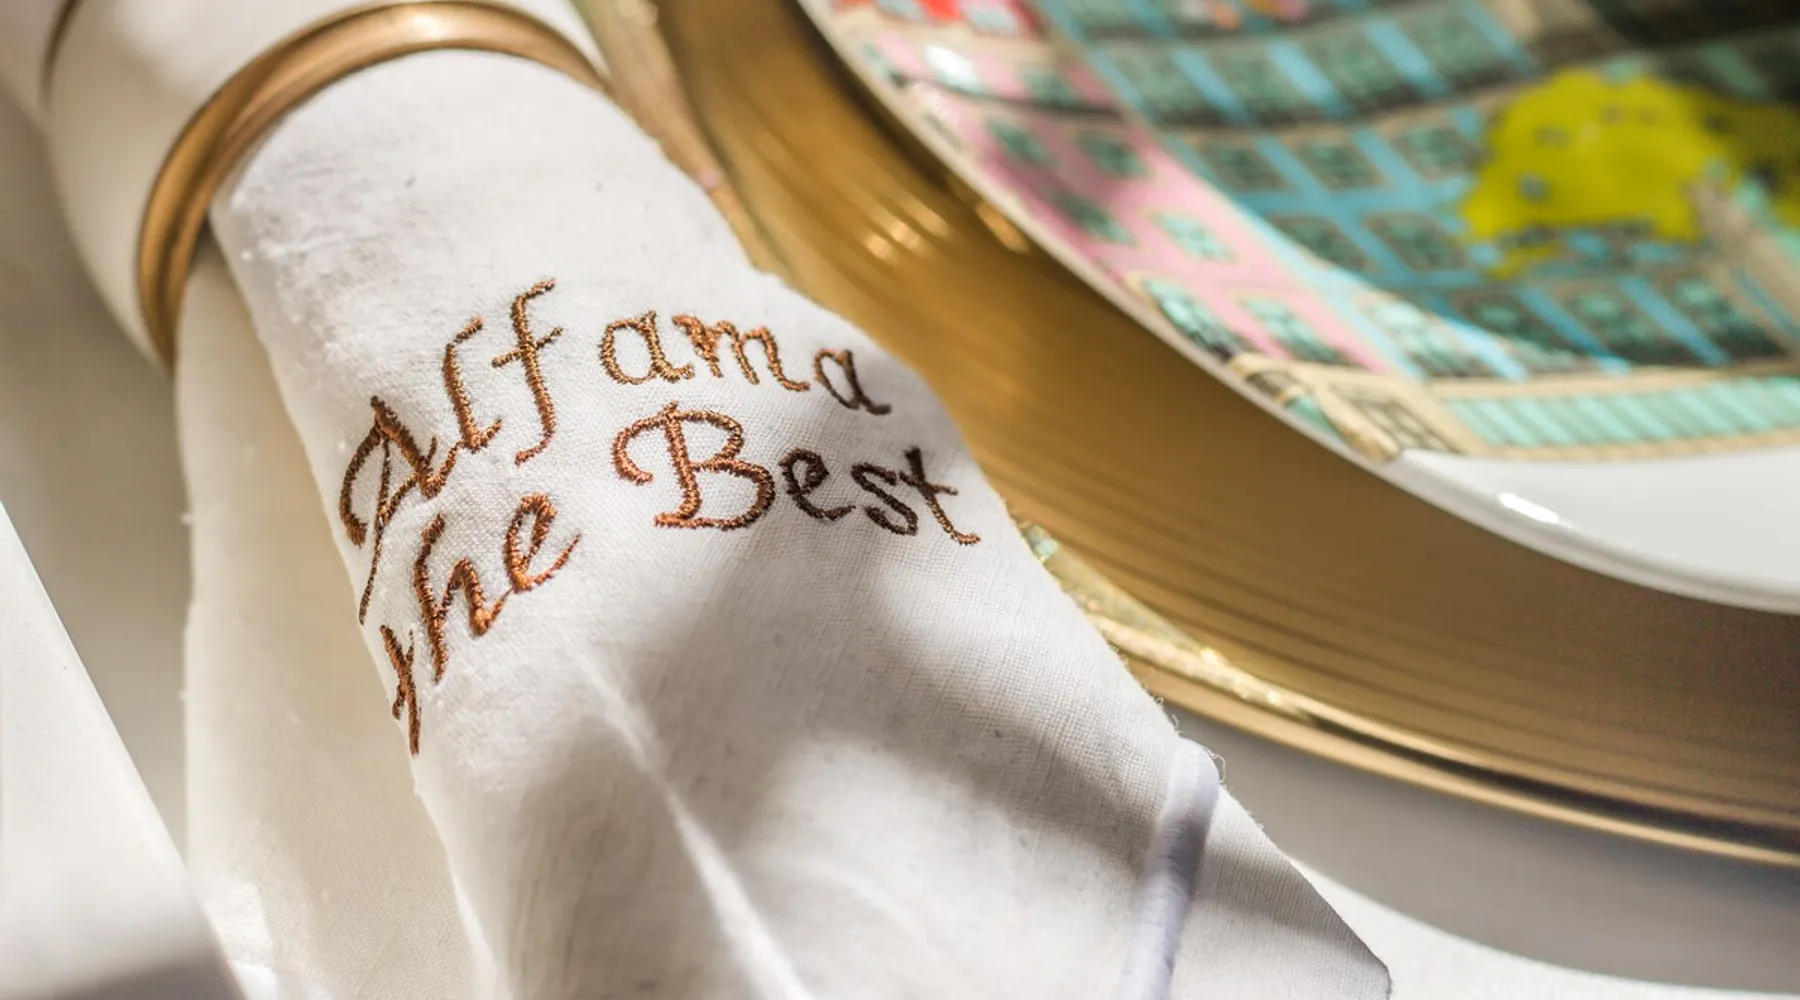 Alfama
the Best